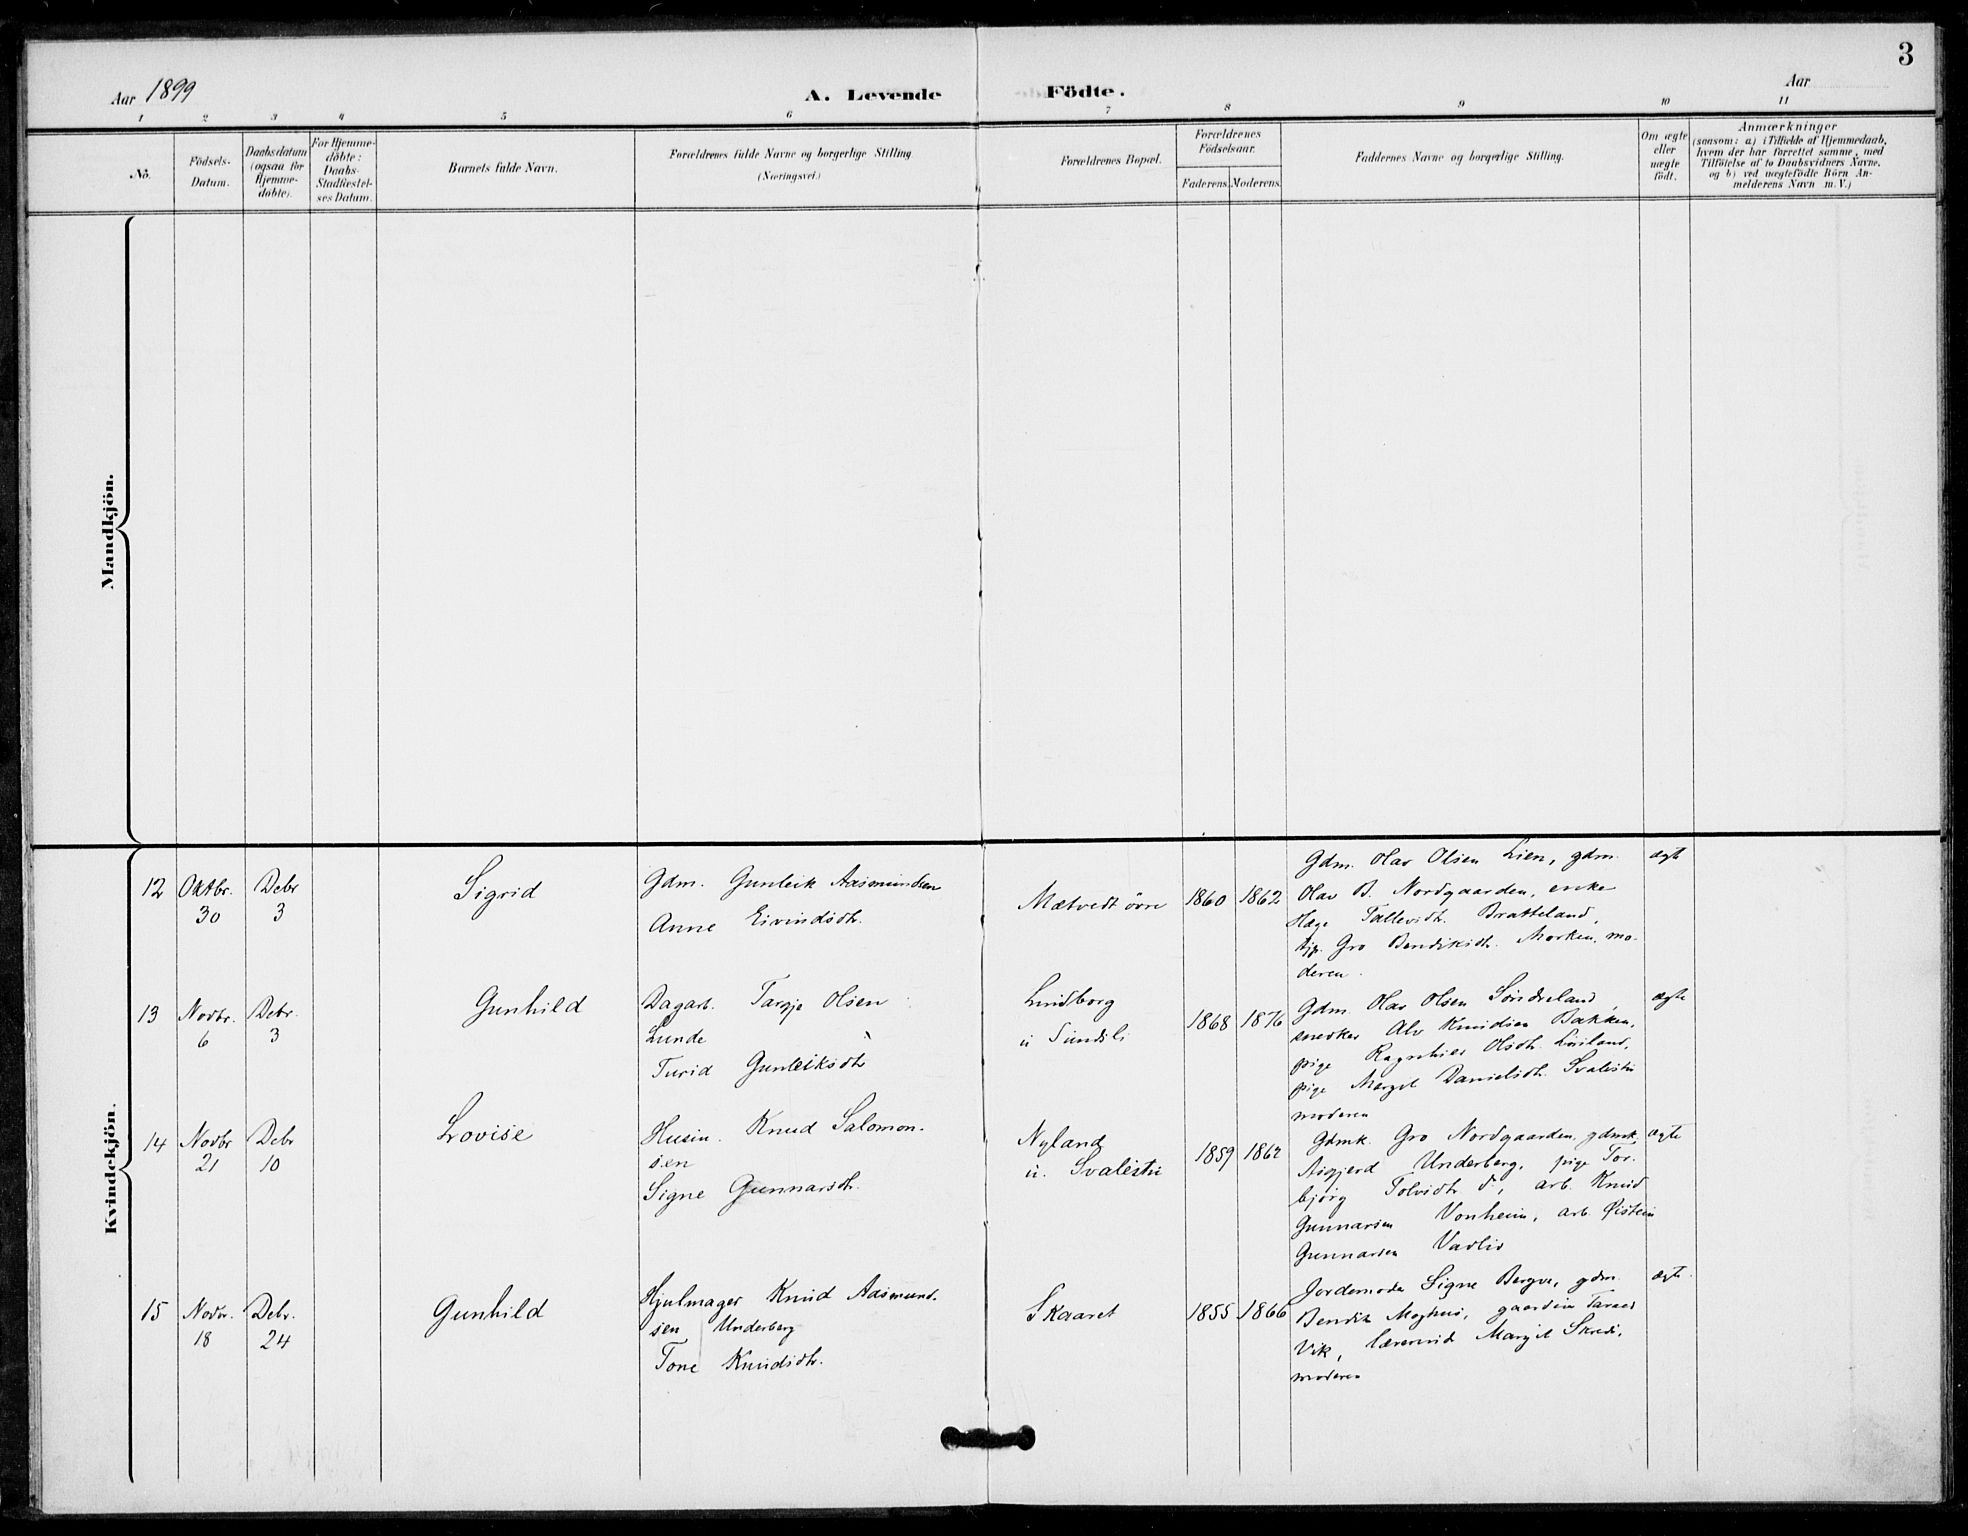 3
Aar 1899
A. Levende Födte.
Aar
1 2 3 4 5 6 7 8 9 10 11
No.
Födsels-
Datum.
Daabsdatum
(ogsaa for
Hjemme-
döbte).
For Hjemme-
döbte:
Daabs-
Stadfæstel-
ses Datum.
Barnets fulde Navn.
Forældrenes fulde Navne og borgerlige Stilling
(Næringsvei.)
Forældrenes Bopæl.
Forældrenes
Födselsaar.
Faderens. Moderens.
Faddernes Navne og borgerlige Stilling.
Om ægte
eller
uægte
födt.
Anmærkninger
(saasom: a) i Tilfælde af Hjemmedaab,
hvem der har forrettet samme, med
Tilföielse af to Daabsvidners Navne.
og b) ved uægtefödte Börn An-
melderens Navn m. V.)
Mandkjön.
Kvindekjön.
12 Oktbr.
30
Debr
3
Sigrid
Gdm. Gunleik Aasmundsen
Anne Eivindsdtr.
Mætvedt övre
1860 1862
Gdm. Olav Olsen Lien, gdm.
Olav B. Nordgaarden, enke
Hæge Tallevsdtr. Bratteland,
tjp. Gro Bendiksdtr. Morken, mo-
deren.
ægte
13 Novbr.
6
Debr.
3
Gunhild
Dagarb. Targje Olsen
Lunde
Turid Gunleiksdtr
Lindborg
u Sundsli
1868 1876
Gdm Olav Olsen Söndreland,
snedker Alv Knudsen Bakken,
pige Olsdtr.
pige Margit Danielsdtr. Svalestu
moderen
ægte
14 Novbr
21
Debr
10
Lovise
Husm. Knud Salomon-
sen
Signe Gunnarsdtr.
Nyland
u. Svalestu
1859 1862
Gdmk. Gro Nordgaarden, gdmk
Aagjerd Underberg, pige Tor-
björg Tolvsdtr d., arb. Knud
Gunnarsen Vonheim, arb. Øistein
Gunnarsen Vadlid
ægte
15 Novbr.
18
Debr.
24
Gunhild
Hjulmager Knud Aasmund-
sen Underberg
Tone Knudsdtr.
Skaaret
1855 1866
Jordemoder Signe Bergve, gdm.
Bendik Moghus, Taraes
Vik, Margit Skredi,
moderen
ægte